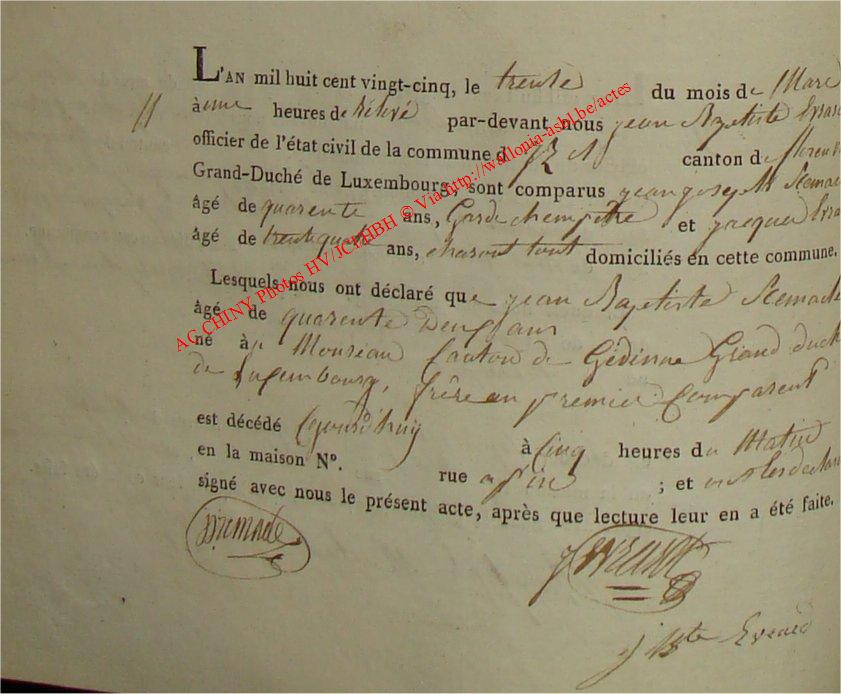 L'AN mil huit cent vingt-cinq, le trente du mois de Mars
à une heures de relevé par-devant nous jean Baptiste Evrar
officier de l'état civil de la commune d canton de florenv
Grand-Duché de Luxembourg, sont comparus jean joseph
âgé de quarente ans, Garde champetre et jacque Evra
âgé de trente quatre ans, domiciliés en cette commune.
Lesquels nous ont déclaré que jean Baptiste
âgé de quarente Deux ans
né à Monseau Canton de Gédinne Grand duch
de Luxembourg, frère au premier Comparent
est décédé à Cinq heures du Matin
en la maison N°. rue ; et
signé avec nous le présent acte, après que lecture leur en a été faite.
j Bte Evrard
AG CHINY Photos HV/JCP/HBH © Via http://wallonia-asbl.be/actes